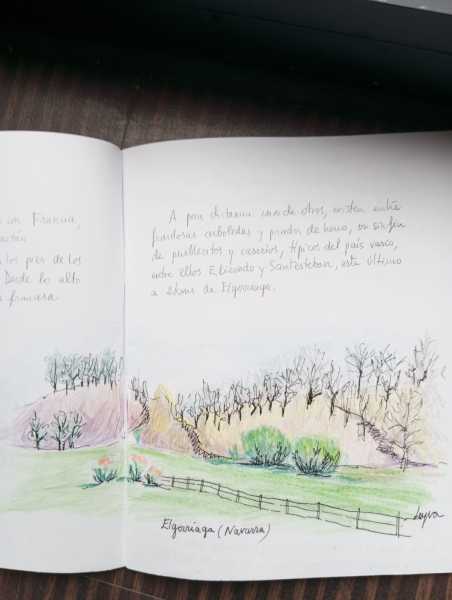 con Francia,
los pies de los
Desde lo alto
francesa
A poca distancia unos de otros, existen entre
frondosas arboledas y prados de heno, un sinfín
de pueblecitos y caseríos, típicos del país vasco,
entre ellos Elizondo y Santesteban, este último
a 2 kms de Elgorriaga.
Elgorriaga (Navarra)
Leyva